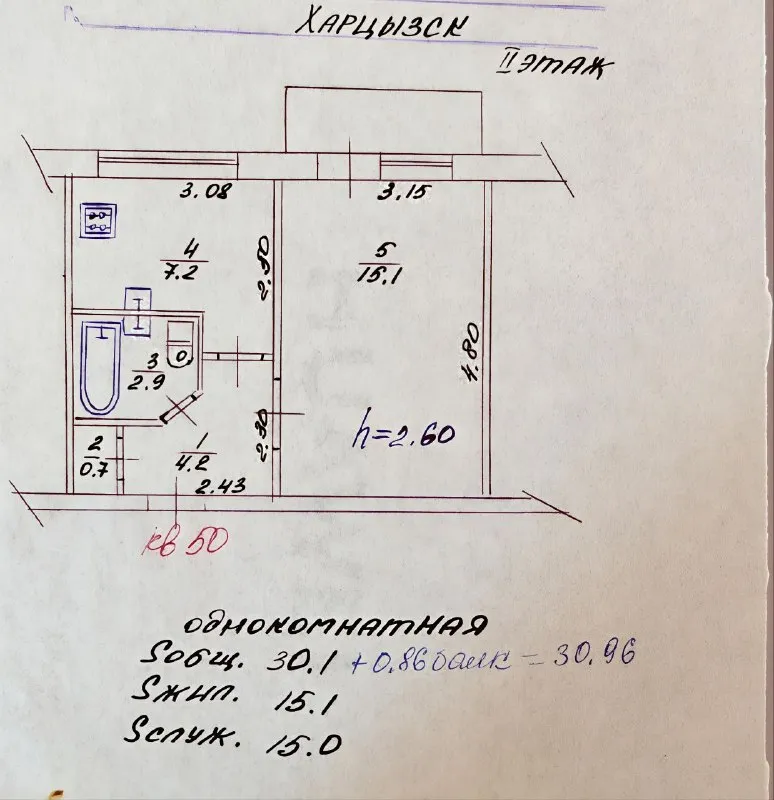 ХАРЦЫЗСК
II ЭТАЖ
3.08
3.15
4
7.2
2.50
5
15.1
4.80
3
2.9
h=2.60
2
0.7
1
4.2
2.30
2.43
кв 50
ОДНОКОМНАТНАЯ
Sобщ. 30.1 +0.86 балк = 30.96
Sжил. 15.1
Sслуж. 15.0